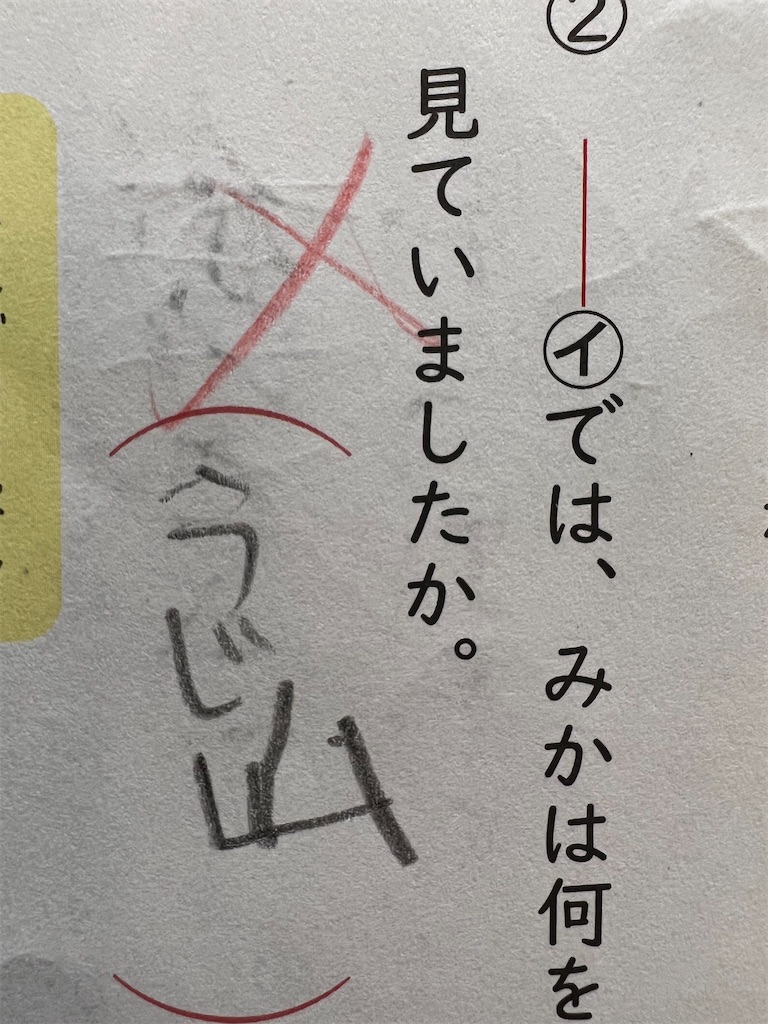 ② ――㋑では、みかは何を
見ていましたか。
（うじ山）